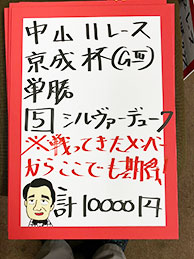 中山11レース
京成杯(GⅢ)
単勝
5 シルヴァーデューク
※戦ってきたメンバー
からここでも期待!
計10000円